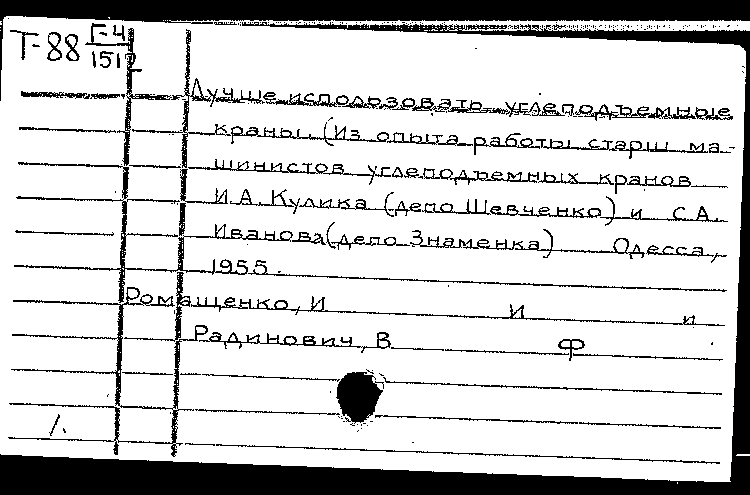 Т-88 Г-4
1512
Лучше использовать углеподъемные
краны. (Из опыта работы старш ма-
шинистов углеподъемных кранов
И.А. Кулика (депо Шевченко) и С.А.
Иванова (депо Знаменка) Одесса,
1955.
Ромащенко, И И и
Радинович, В Ф
1.